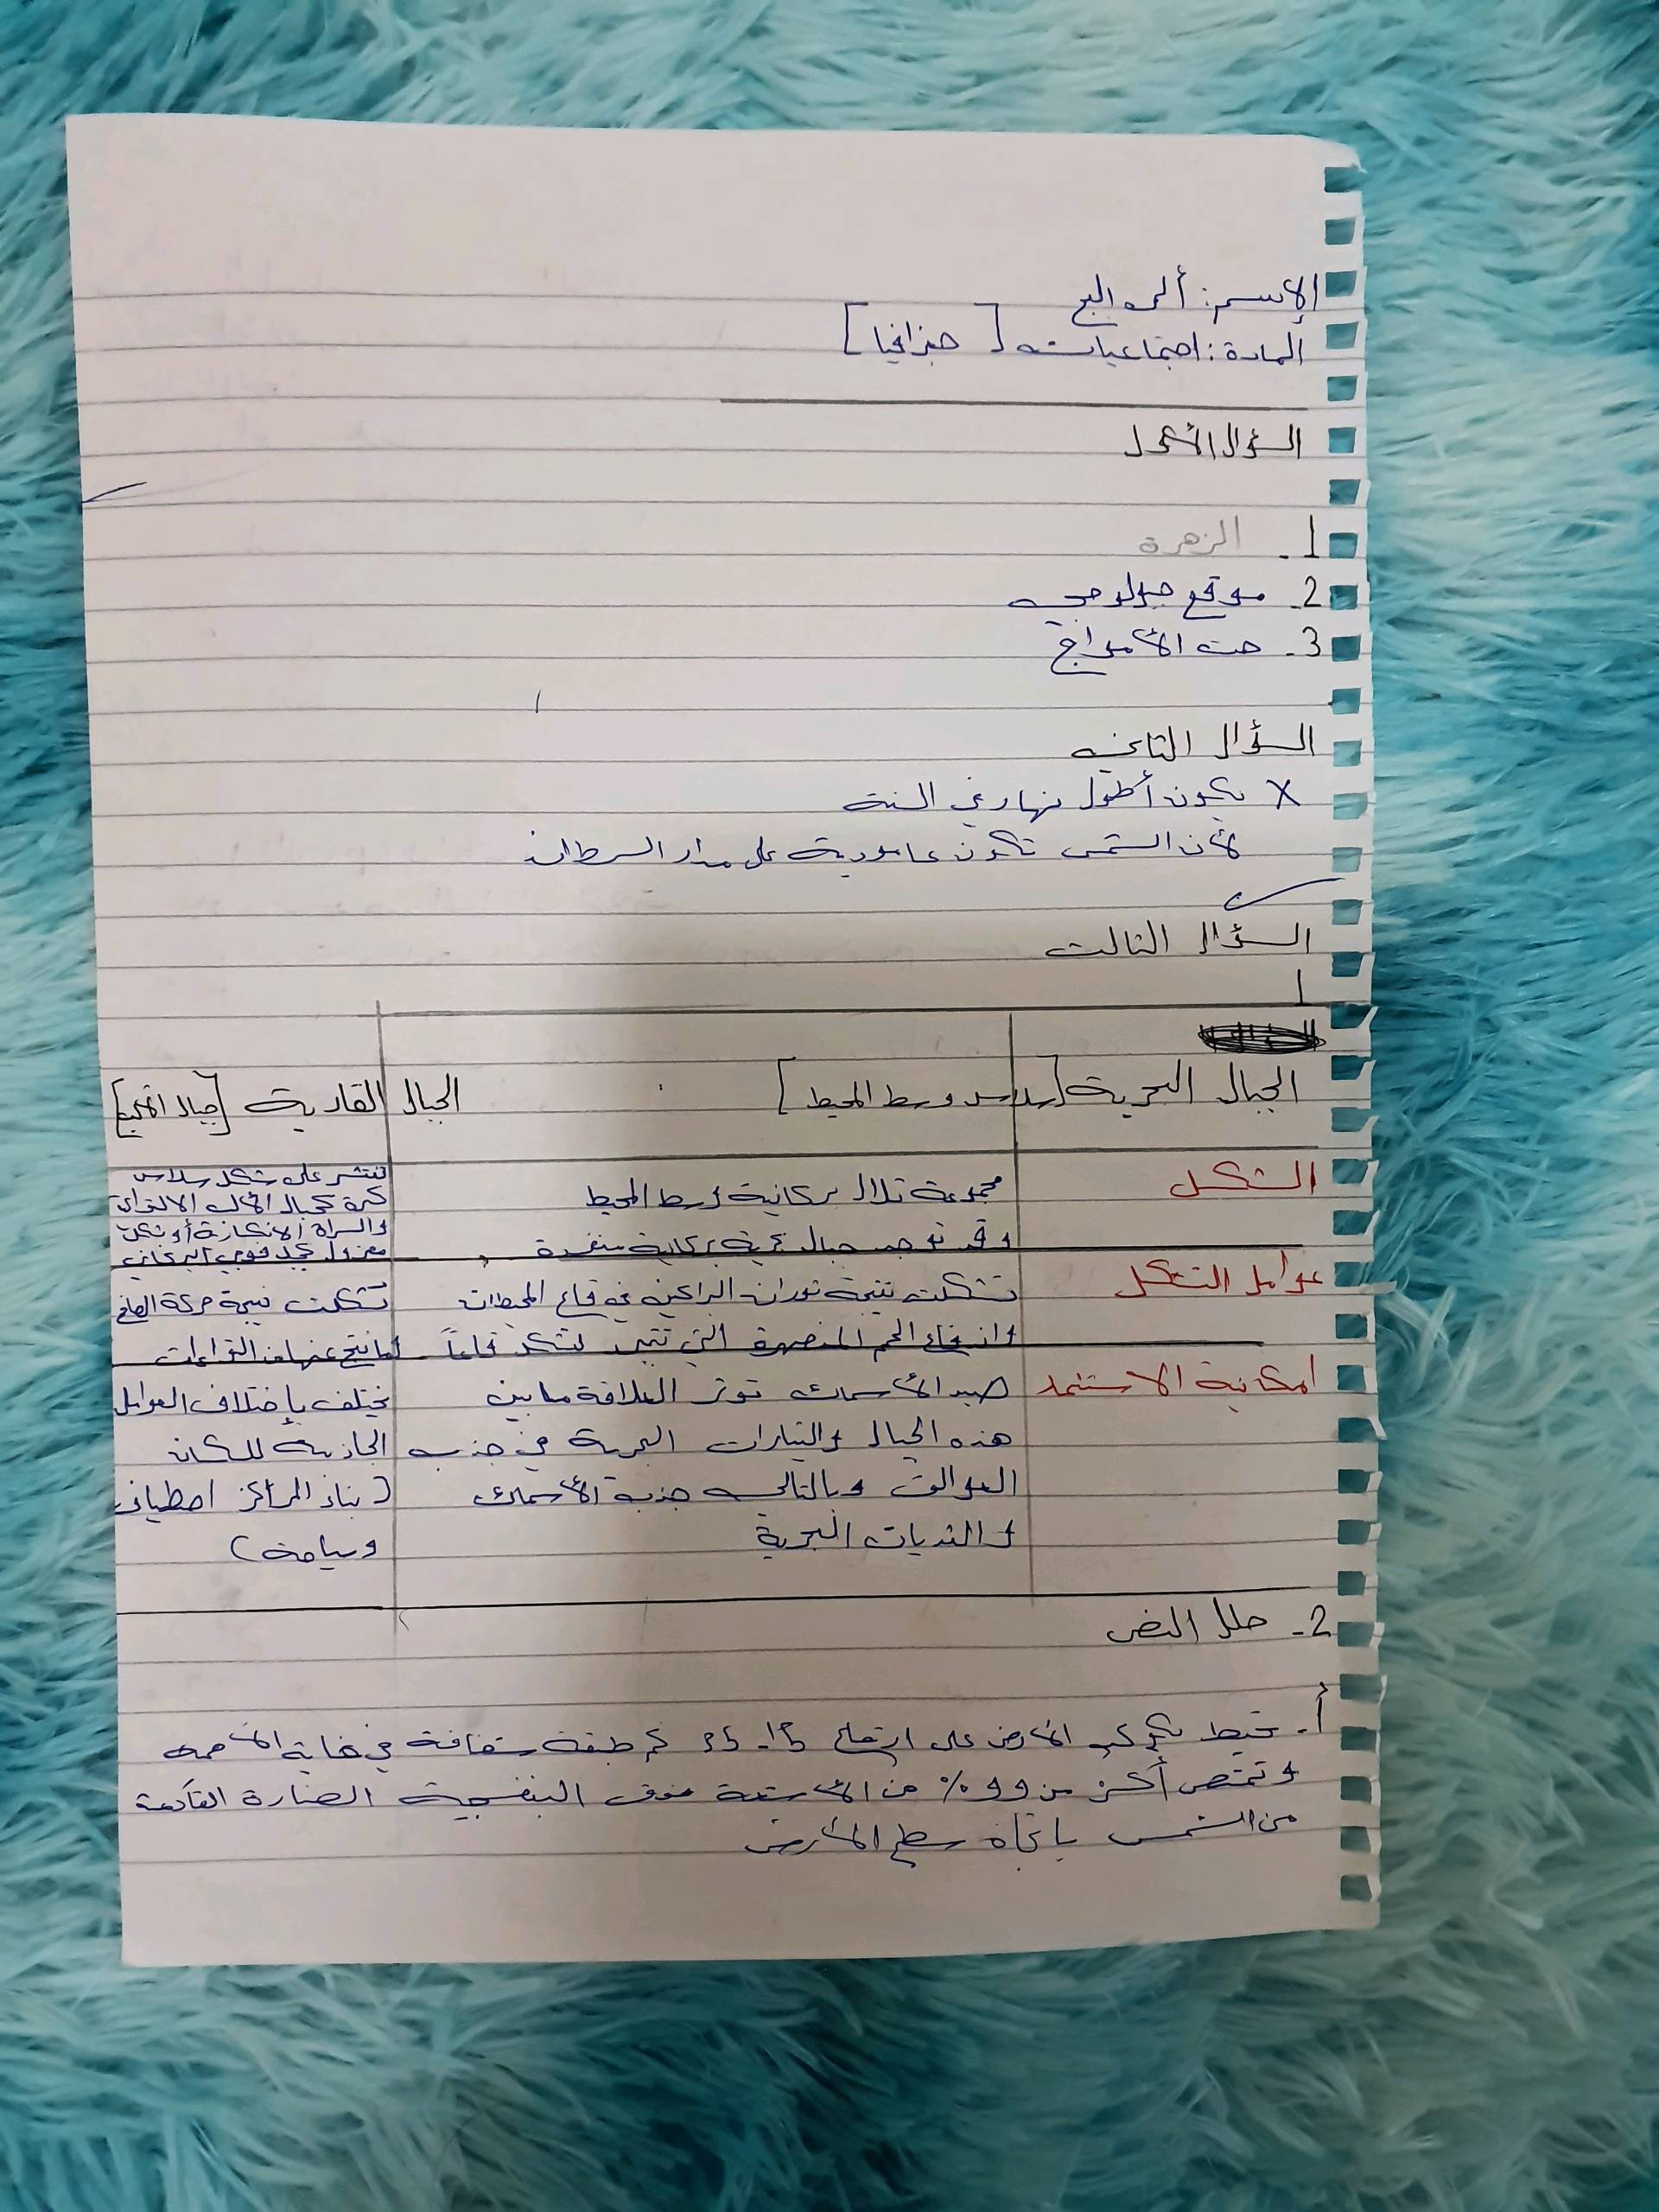 الاسم: ألمى البج
المادة: اجتماعيات [جغرافيا]
السؤال الأول
1. الزهرة
2. موقع جيولوجي
3. حت الأمواج
السؤال الثاني
X يكون أطول نهار في السنة
لأن الشمس تكون عامودية على مدار السرطان
السؤال الثالث
1
الجبال البحرية [سلاسل وسط المحيط] الجبال القارية [جبال]
الشكل
مجموعة تلال بركانية وسط المحيط
وقد توجد جبال بحرية بركانية منفردة
تنتشر على شكل سلاسل
كبرى كجبال الألب الالتوائية
والسراة الانكسارية أو بشكل
معزول كجبل فوجي البركاني
عوامل التشكل
تشكلت نتيجة ثوران البراكين في قاع المحيطات
واندفاع الحمم المنصهرة التي تتجمد لتشكل قاعاً
تشكلت نتيجة حركة الصفائح
وما نتج عنها من التواءات
امكانية الاستثمار
صيد الأسماك توفر العلاقة ما بين
هذه الجبال والتيارات البحرية في جذب
العوالق وبالتالي جذب الأسماك
والثديات البحرية
يختلف بإختلاف العوامل
الجاذبة للسكان
(بناء المراكز اصطياف
وسياحة)
2. حلل النص
أ. تحيط بكوكب الأرض على ارتفاع 15. 35 كم طبقة شفافة في غاية الأهمية
وتمتص أكثر من 99% من الأشعة فوق البنفسجية الضارة القادمة
من الشمس باتجاه سطح الأرض